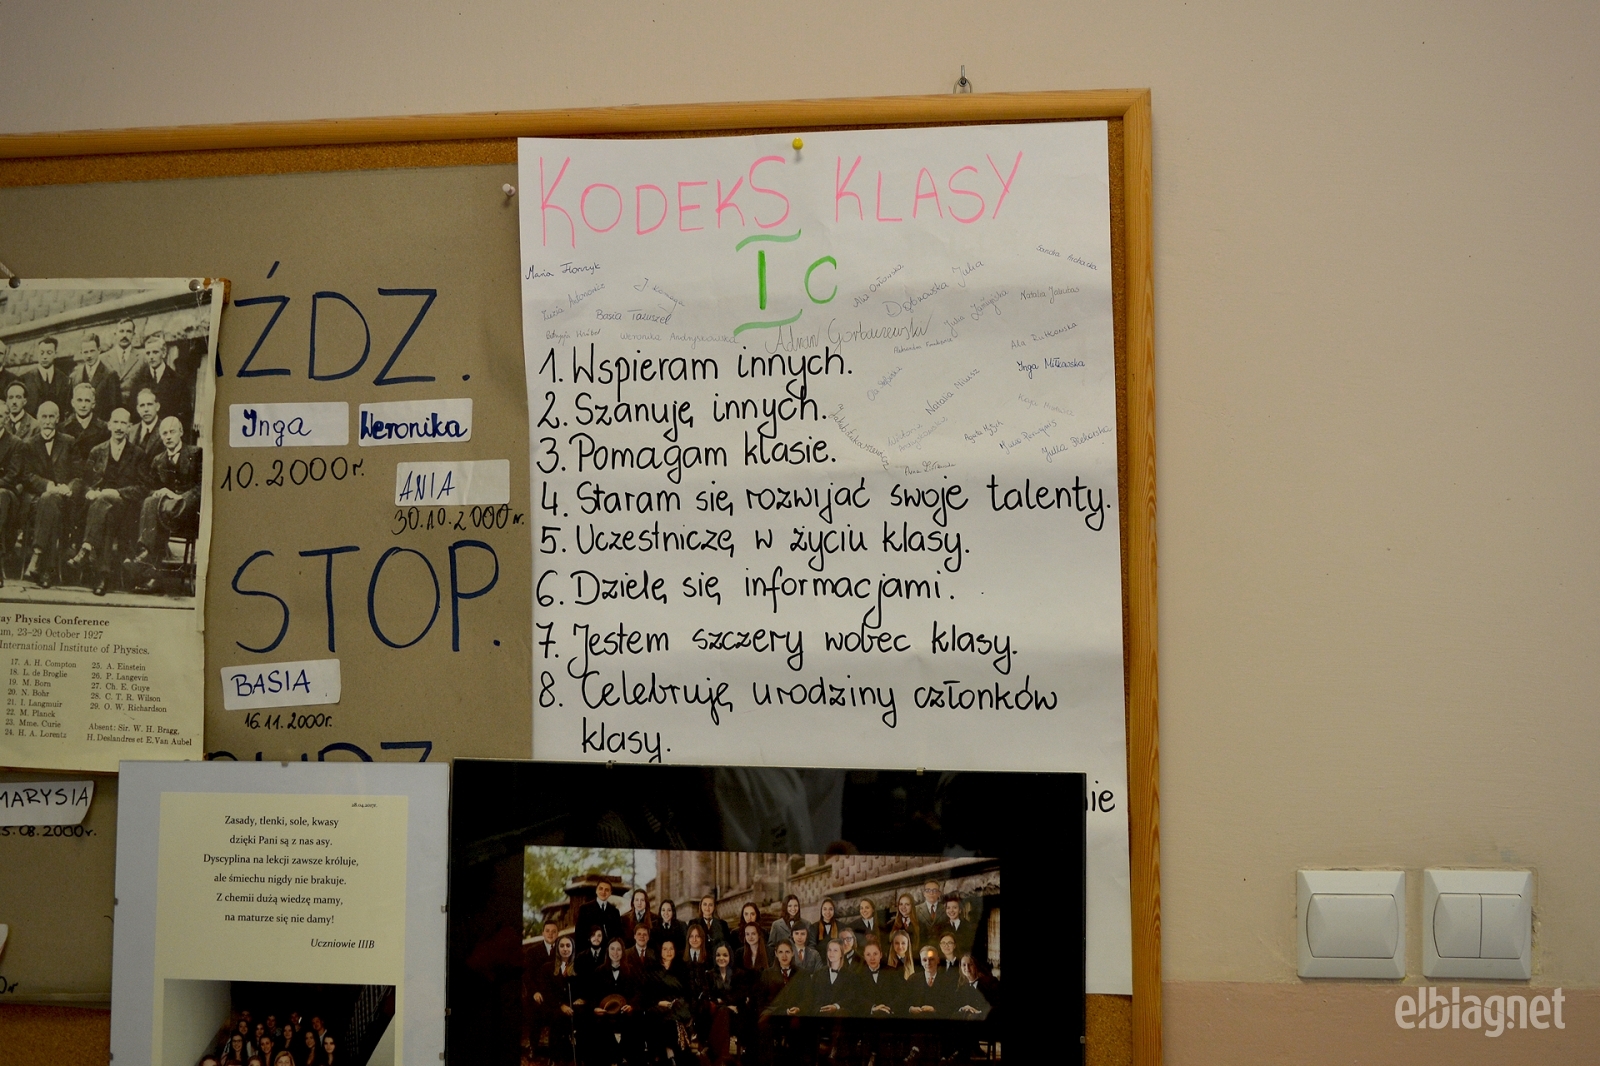 KODEKS KLASY
I C
Maria
Basia
Weronika
Dąbrowska Julia
Natalia Jakubas
Adrian Gorbaczewski
Inga Miłkowska
Natalia
1. Wspieram innych.
2. Szanuję innych.
3. Pomagam klasie.
4. Staram się rozwijać swoje talenty.
5. Uczestniczę w życiu klasy.
6. Dzielę się informacjami.
7. Jestem szczery wobec klasy.
8. Celebruję urodziny członków
klasy.
nie
ŹDZ.
Inga
Weronika
10.2000r.
ANIA
30.10.2000r.
STOP.
BASIA
16.11.2000r.
MARYSIA
5.08.2000r.
ay Physics Conference
um, 23-29 October 1927
International Institute of Physics.
17. A. H. Compton
18. L. de Broglie
19. M. Born
20. N. Bohr
21. I. Langmuir
22. M. Planck
23. Mme. Curie
24. H. A. Lorentz
25. A. Einstein
26. P. Langevin
27. Ch. E. Guye
28. C. T. R. Wilson
29. O. W. Richardson
Absent: Sir. W. H. Bragg,
H. Deslandres et E. Van Aubel
Zasady, tlenki, sole, kwasy
dzięki Pani są z nas asy.
Dyscyplina na lekcji zawsze króluje,
ale śmiechu nigdy nie brakuje.
Z chemii dużą wiedzę mamy,
na maturze się nie damy!
Uczniowie IIIB
elblagnet